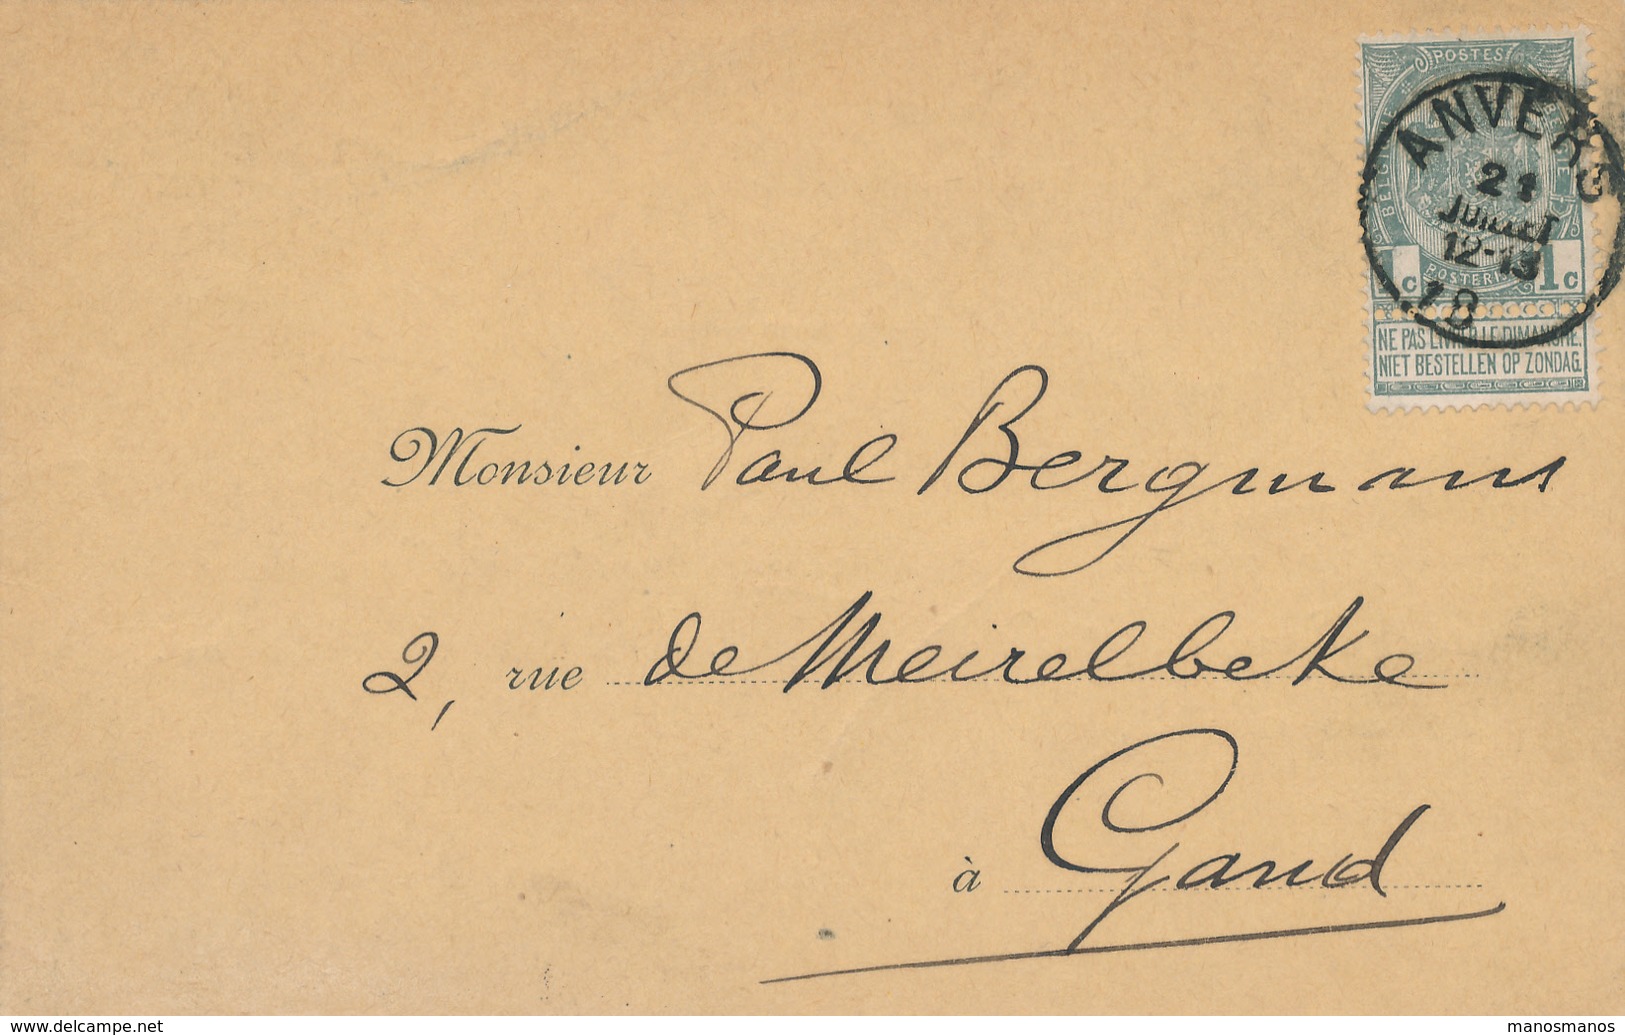 POSTES
BELGIQUE
BELGIË
1c 1c
POSTERIJEN
NE PAS LIVRER LE DIMANCHE.
NIET BESTELLEN OP ZONDAG.
ANVERS
21
JUILLET
12-13
Monsieur Paul Bergmans
2, rue de Meirelbeke
à Gand
www.delcampe.net
manosmanos